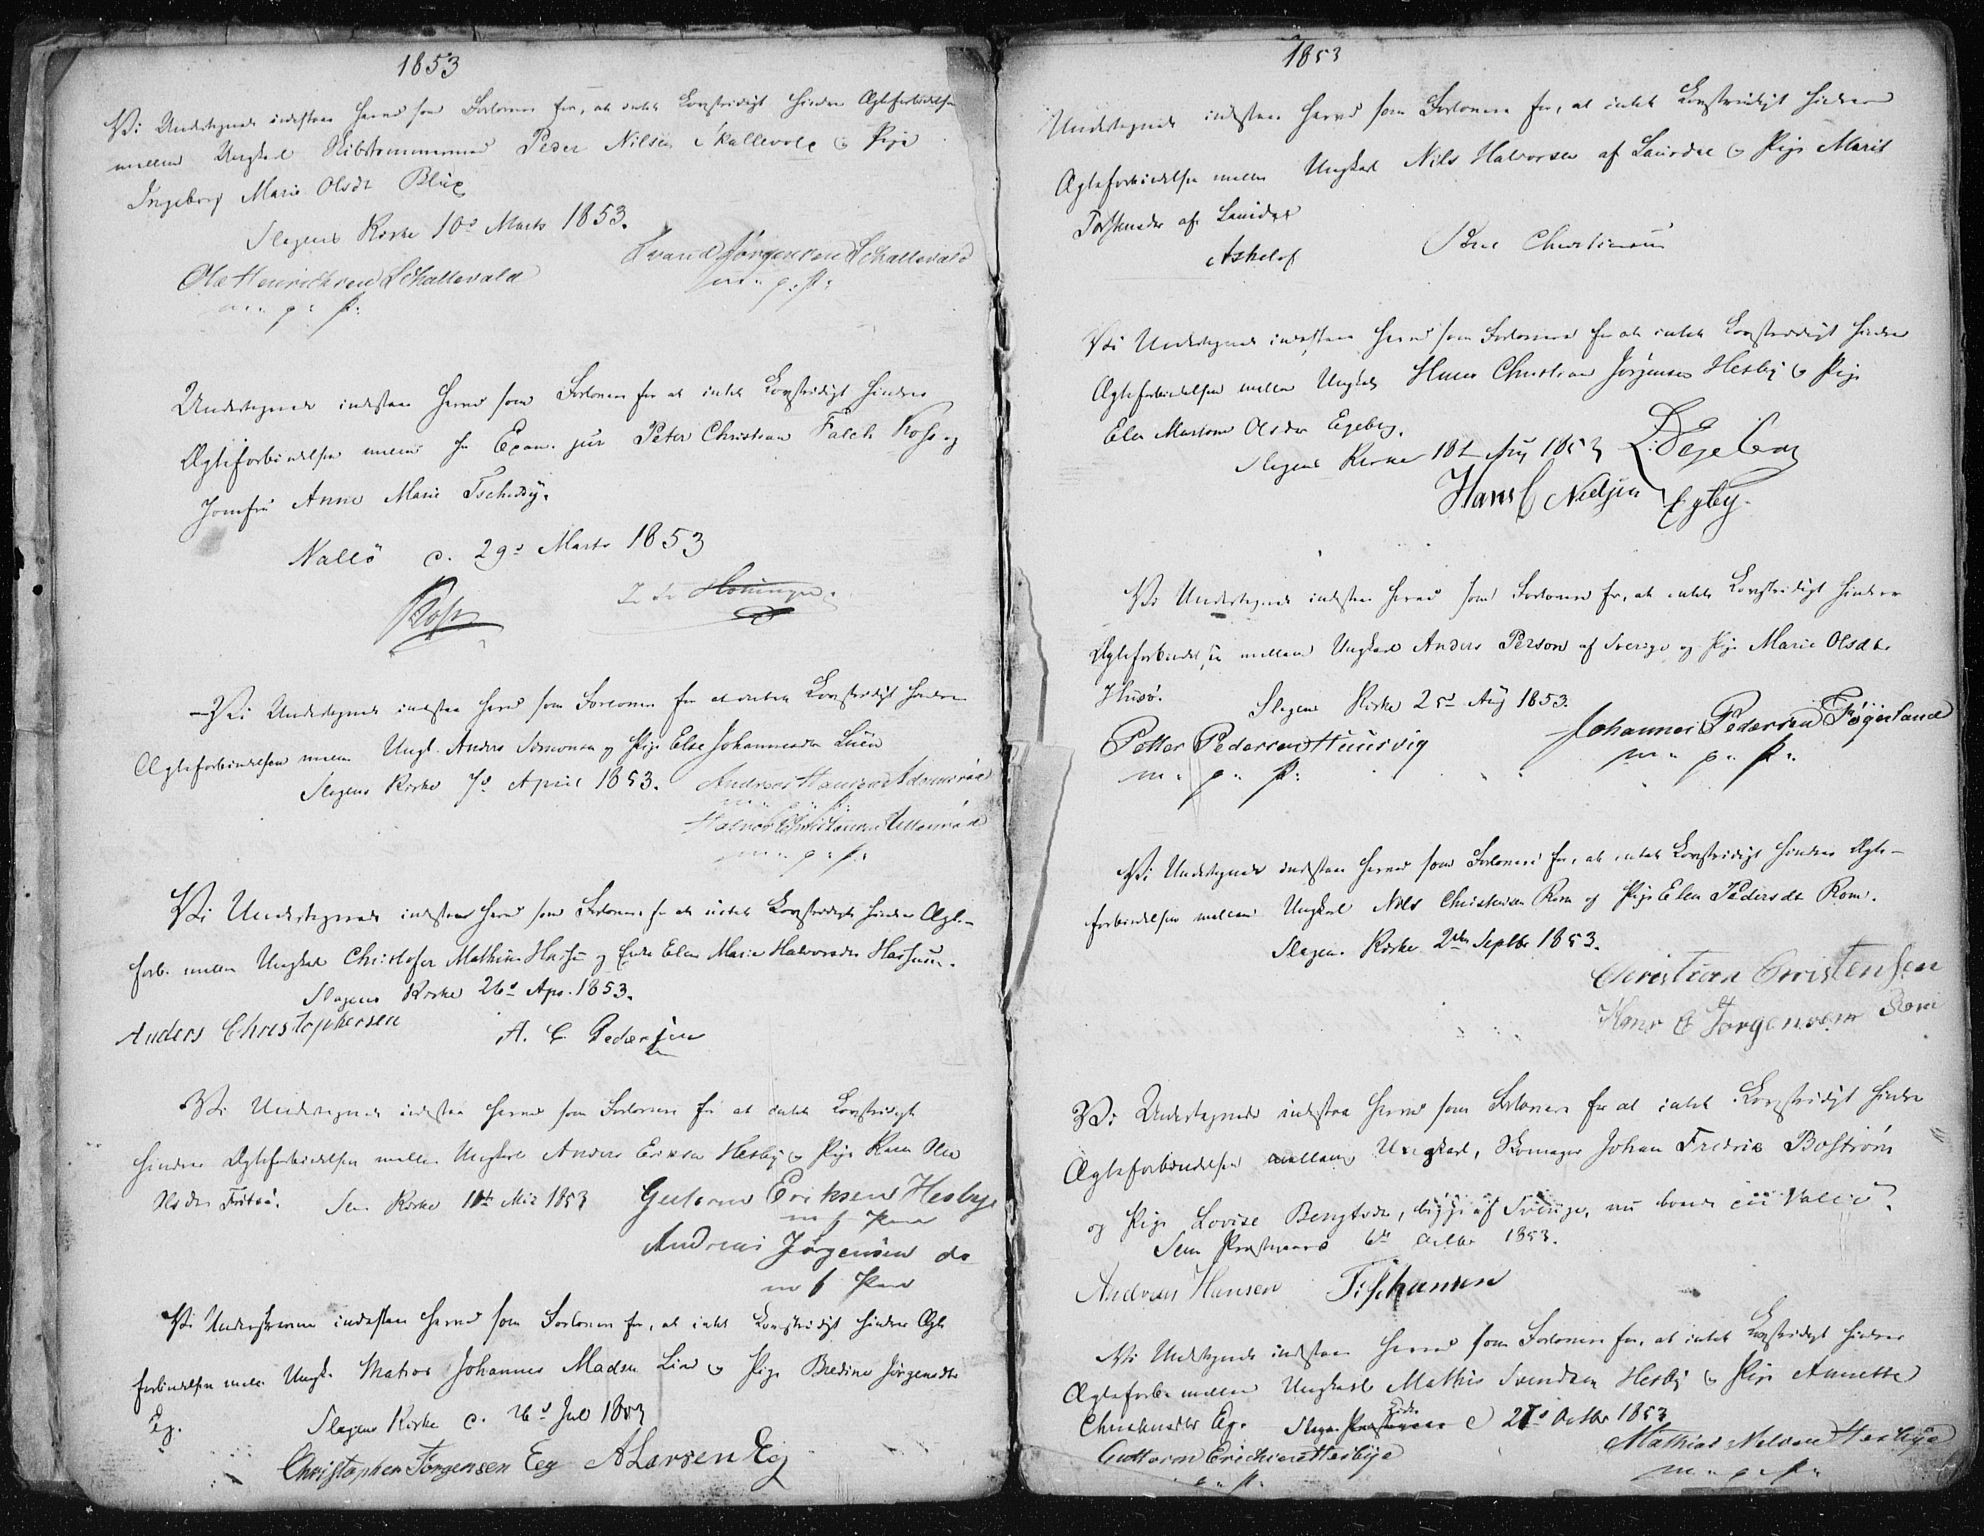 1853
Vi Undertegnede indestaae herved som Forlovere for, at intet Lovstridigt hindrer Ægteforbindelsen
mellem Ungkarl Skibstømmermand Peder Nilsen Skallevold og Pige
Ingeborg Marie Olsdr Blix
Slagens Kirke 10d Marts 1853.
Ole Henrichsen Schallevald
Svend Jørgensen Schallevald
m. p. p.
m. p. p.
Undertegnede indestaae herved som Forlovere for at intet Lovstridigt hindrer
Ægteforbindelsen mellem Hr Exam. jur Peter Christian Falch Ross og
Jomfru Anne Marie
Vallö d. 29d Marts 1853
Ross
Vi Undertegnede indestaae herved som Forlovere for at intet Lovstridigt hindrer
Ægteforbindelsen mellem Ungk. Anders Simonsen og Pige Else Johannesdr
Slagens Kirke 7d April 1853.
Andreas Hansen
m. p. p.
m. p. p.
Vi Undertegnede indestaae herved som Forlovere for at intet Lovstridigt hindrer Ægte-
forb. mellem Ungkarl Christofer Mathias og Enke Elen Marie Halvorsdr
Slagens Kirke 26d Apr. 1853.
Anders Christophersen
A. C. Pedersen
Vi Undertegnede indestaae herved som Forlovere for at intet Lovstridigt
hindrer Ægteforbindelsen mellem Ungkarl Anders Eriksen Hesby og Pige Karen
Sem Kirke 1853
Guttorm Eriksen Hesbye
m f Pen
Andreas Jørgensen do
m f Pen
Vi Underskrevne indestaae herved som Forlovere for, at intet Lovstridigt hindrer Ægte
forbindelsen mellem Ungk. Matros Johannes Madsen Lind og Pige Bredine Jørgensdtr
Eg.
Slagens Kirke d. 26d Juli 1853
Christopher Jørgensen Eeg
A Larsen Eg
1853
Undertegnede indestaae herved som Forlovere for, at intet Lovstridigt hindrer
Ægteforbindelsen mellem Ungkarl Nils Halvorsen af Laurdal og Pige Marit
af Laurdal
Askelof
Christiansen
Vi Undertegnede indestaae herved som Forlovere for at intet Lovstridigt hindrer
Ægteforbindelsen mellem Ungkarl Hans Christian Jørgensen Hesby og Pige
Elen Martine Olsdr Egeberg.
Slagens Kirke 18d Aug 1853
Hans C Nielsen
Vi Undertegnede indestaae herved som Forlovere for, at intet Lovstridigt hindrer
Ægteforbindelsen mellem Ungkarl Anders Person af Sverige og Pige Marie Olsdtr
Husö.
Slagens Kirke 25d Aug 1853.
Petter Pedersen Huusvig
Johannes Pedersen Føyerland
m. p. p.
m. p. p.
Vi Undertegnede indestaae herved som Forlovere for, at intet Lovstridigt hindrer Ægte-
forbindelsen mellem Ungkarl Nils Christensen Rom og Pige Elen Pedersdr Rom.
Slagens Kirke 2den Septbr 1853.
Christian Cristensen
Hans C Jørgensen Rom
Vi Undertegnede indestaae herved som Forlovere for at intet Lovstridigt hindrer
Ægteforbindelsen mellem Ungkarl, Skomager Johan Fredrik Boström
og Pige Lovise Bengtsdr, begge af Sverige, nu boende paa Vallö.
Sem Præstegaard 6te Octbr 1853.
Andreas Hansen
Vi Undertegnede indestaae herved som Forlovere for, at intet Lovstridigt hindrer
Ægteforb. mellem Ungkarl Mathis Svendsen Hesby og Pige Annette
Christensdtr Eg. Slagens Kirke d 27d Octbr 1853
Guttorm Erichsen Hesbye
Mathias Nilsen Hesbye
p. p.
m. p. p.